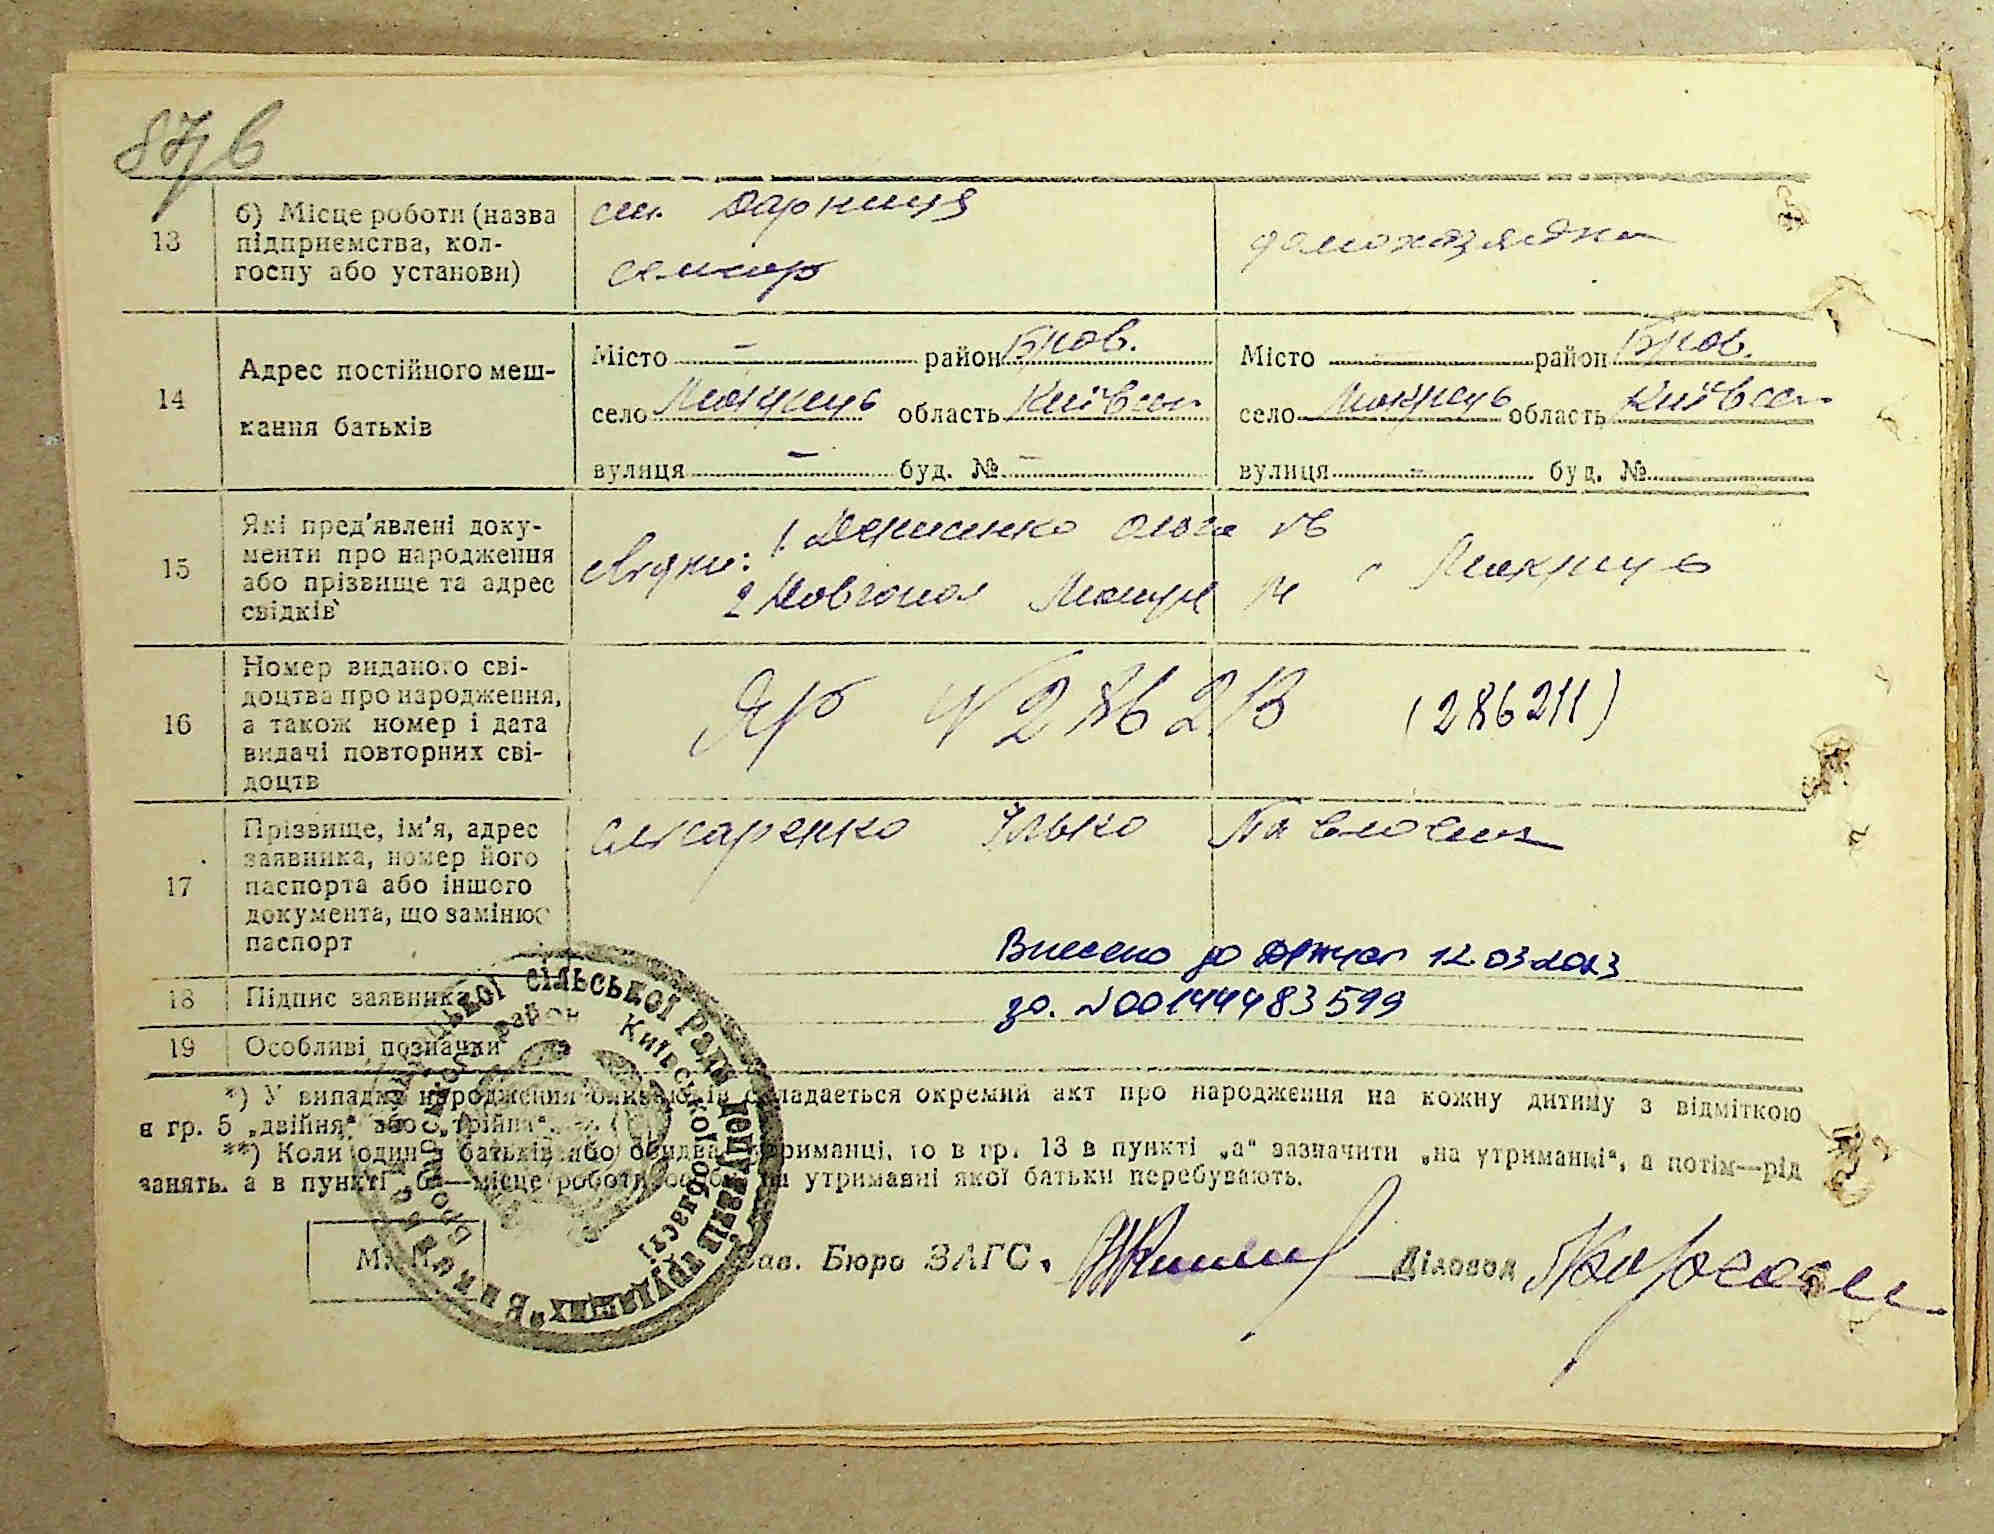 87 в
13
б) Місце роботи (назва
підприємства, кол-
госпу або установи)
ст. Дарниця
домохазяйка
14
Адрес постійного меш-
кання батьків
Місто - район Бров.
село Мокрець область Київськ
вулиця - буд. № -
Місто район Бров.
село Мокрець область Київськ
вулиця - буд. №
15
Які пред'явлені доку-
менти про народження
або прізвище та адрес
свідків
свідки: 1. Денисенко Ольга
2 Довгопол М с Мокрець
16
Номер виданого сві-
доцтва про народження,
а також номер і дата
видачі повторних сві-
доцтв
№ 286213 (286211)
17
Прізвище, ім'я, адрес
заявника, номер його
паспорта або іншого
документа, що замінює
паспорт
Ілько Павлович
Внесено до 12.03.2013
за. №00144483599
18
Підпис заявника
19
Особливі позначки
*) У випадку народження близнюків складається окремий акт про народження на кожну дитину з відміткою
в гр. 5 „двійня“ або „трійня“.
**) Коли один з батьків або обидва на утриманні, то в гр. 13 в пункті „а“ зазначити „на утриманні“, а потім—рід
занять, а в пункті „б“—місце роботи особи, на утриманні якої батьки перебувають.
М. П.
Зав. Бюро ЗАГС.
Діловод
сільської Ради депутатів трудящих
район Київської області